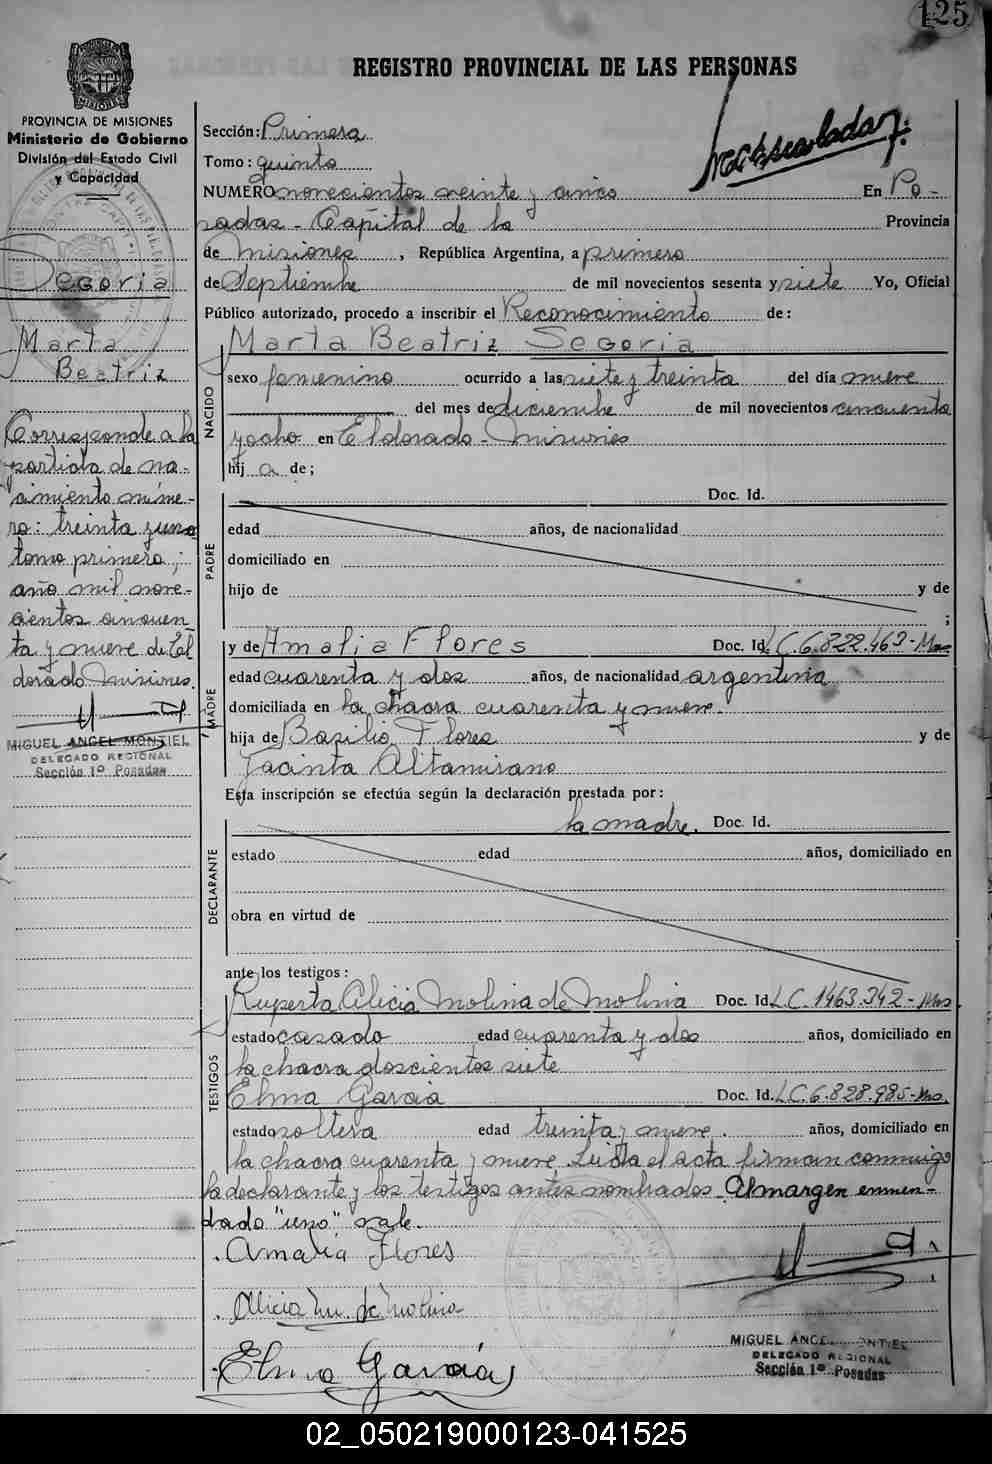 125
REGISTRO PROVINCIAL DE LAS PERSONAS
PROVINCIA DE MISIONES
Ministerio de Gobierno
División del Estado Civil
y Capacidad
Segoria
Marta
Beatriz
Corresponde a la
partida de na-
cimiento núme-
ro: treinta y uno
tomo primero;
año mil nove-
cientos cincuen-
ta y nueve de El
dorado Misiones.
MIGUEL ANGEL MONTIEL
DELEGADO REGIONAL
Sección 1º Posadas
Sección: Primera
Tomo: quinto
NUMERO novecientos veinte y cinco En Po-
sadas - Capital de la Provincia
de Misiones, República Argentina, a primero
de Septiembre de mil novecientos sesenta y siete Yo, Oficial
Público autorizado, procedo a inscribir el Reconocimiento de:
Marta Beatriz Segoria
NACIDO
sexo femenino ocurrido a las siete y treinta del día nueve
del mes de diciembre de mil novecientos cincuenta
y ocho en Eldorado - Misiones
hij a de;
PADRE
Doc. Id.
edad años, de nacionalidad
domiciliado en
hijo de y de
;
MADRE
y de Amalia Flores Doc. Id. LC. 6.822.463- Mnes
edad cuarenta y dos años, de nacionalidad argentina
domiciliada en la chacra cuarenta y nueve.
hija de Basilio Flores y de
Jacinta Altamirano
Esta inscripción se efectúa según la declaración prestada por:
DECLARANTE
la madre. Doc. Id.
estado edad años, domiciliado en
obra en virtud de
ante los testigos:
TESTIGOS
Ruperta Alicia Molina de Molina Doc. Id. LC. 1463.342- Mns.
estado casado edad cuarenta y dos años, domiciliado en
la chacra doscientos siete
Elma Garcia Doc. Id. LC. 6.828.985- Mns.
estado soltera edad treinta y nueve. años, domiciliado en
la chacra cuarenta y nueve. Leida el acta firman conmigo
la declarante y los testigos antes nombrados. Al margen enmen-
dado "uno" vale.
Amalia Flores
Alicia M. de Molina
Elma Garcia
MIGUEL ANGEL MONTIEL
DELEGADO REGIONAL
Sección 1º Posadas
02_050219000123-041525